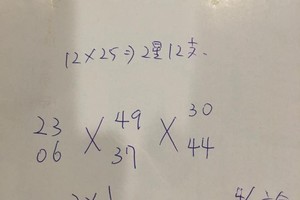 12×25⇒2星12支.
23 × 49 × 30
06 37 44